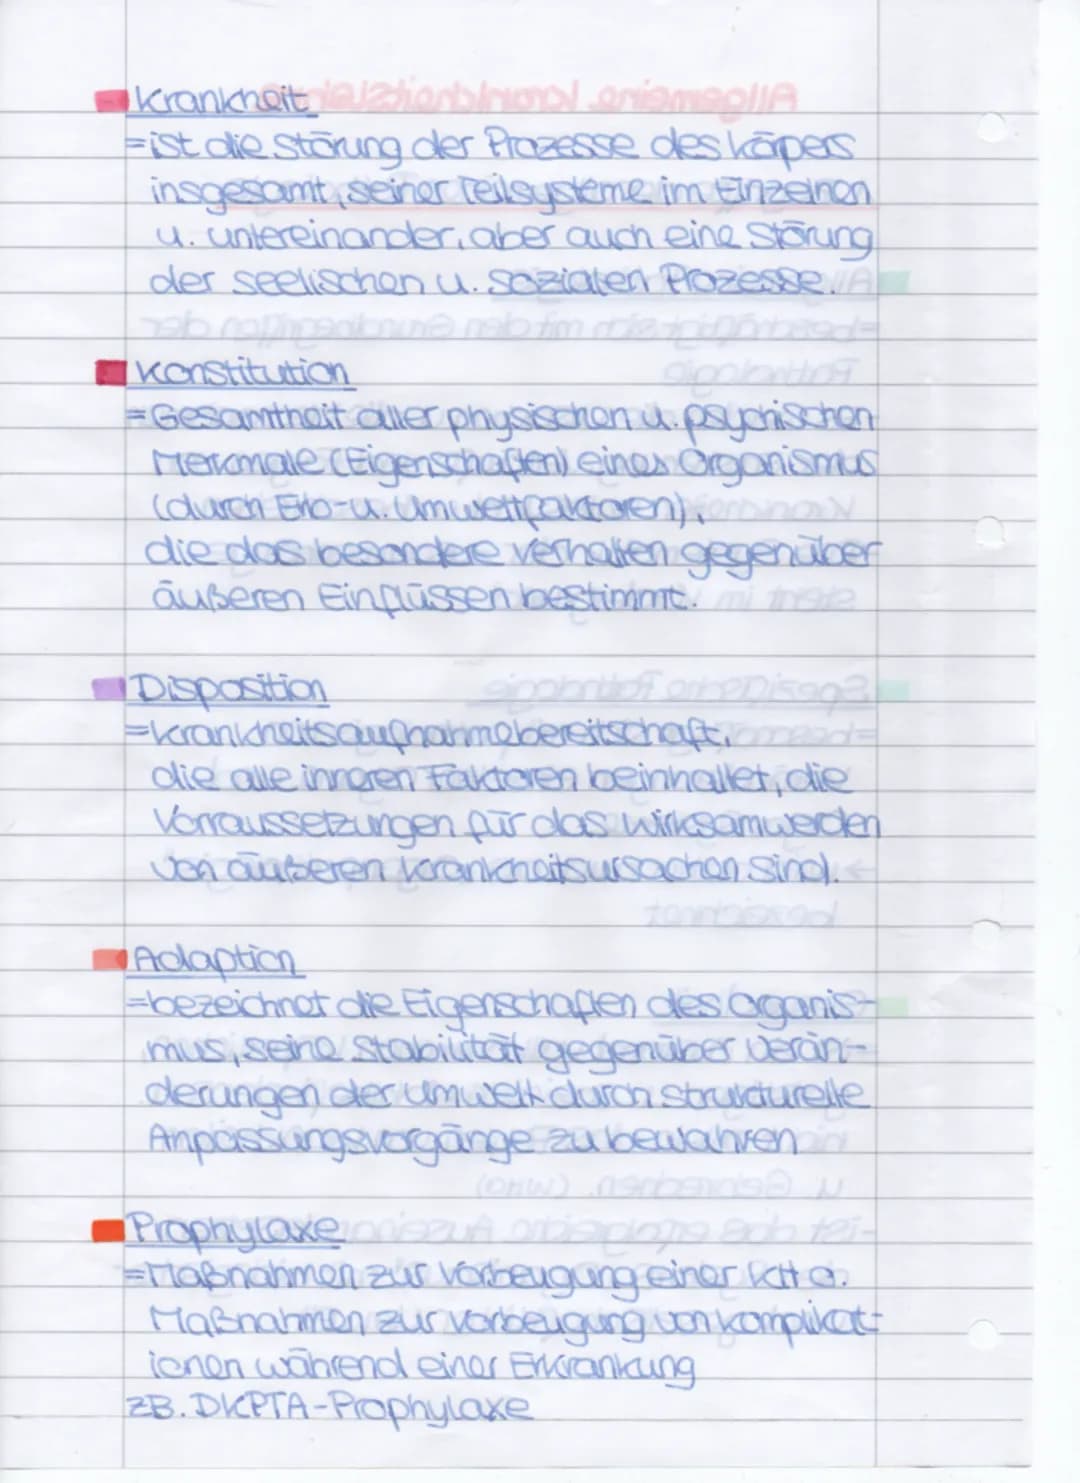 Krankheit
=ist die Störung der Prozesse des Körpers
insgesamt, seiner Teilsysteme im Einzelnen
u. untereinander, aber auch eine Störung
der seelischen u. sozialen Prozesse.
Konstitution
=Gesamtheit aller physischen u. psychischen
Merkmale (Eigenschaften) eines Organismus
(durch Erb-u. Umweltfaktoren),
die das besondere Verhalten gegenüber
äußeren Einflüssen bestimmt.
Disposition
=Krankheitsaufnahmebereitschaft,
die alle inneren Faktoren beinhaltet, die
Vorraussetzungen für das Wirksamwerden
von äußeren Krankheitsursachen sind.
Adaption
=bezeichnet die Eigenschaften des Organis-
mus, seine Stabilität gegenüber Verän-
derungen der Umwelt durch strukturelle
Anpassungsvorgänge zu bewahren
Prophylaxe
=Maßnahmen zur Vorbeugung einer KH o.
Maßnahmen zur Vorbeugung von Komplikat-
ionen während einer Erkrankung
zB. DKPTA-Prophylaxe